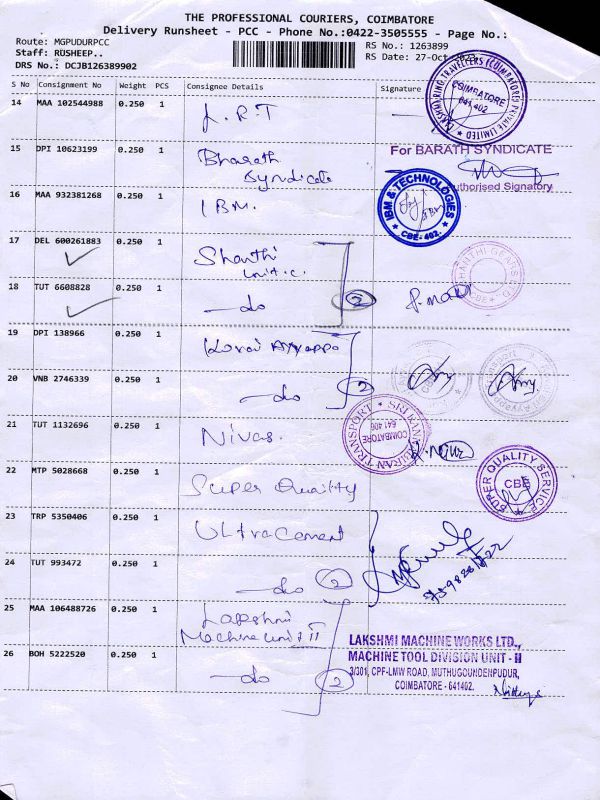 THE PROFESSIONAL COURIERS, COIMBATORE
Delivery Runsheet - PCC - Phone No.:0422-3505555 - Page No.:
Route: MGPUDURPCC RS No.: 1263899
Staff: RUSHEEP.. RS Date: 27-Oct
DRS No.: DCJB126389902
S No Consignment No Weight PCS Consignee Details Signature
14 MAA 102544988 0.250 1 L.R.T
15 DPI 10623199 0.250 1 Bharath Syndicate
For BARATH SYNDICATE
Authorised Signatory
16 MAA 932381268 0.250 1 IBM.
IBM & TECHNOLOGIES
CBE-402.
17 DEL 600261883 0.250 1 Shanthi unit.c.
18 TUT 6608828 0.250 1 -do 2
19 DPI 138966 0.250 1 Kovai Ayyappa
20 VNB 2746339 0.250 1 -do 2
21 TUT 1132696 0.250 1 Nivas.
TRANSPORT
COIMBATORE
641 406
22 MTP 5028668 0.250 1 Super Quality
SUPER QUALITY SERVICE
CBE
23 TRP 5350406 0.250 1 Ultracement
24 TUT 993472 0.250 1 -do 2
25 MAA 106488726 0.250 1 Lakshmi Machine unit II
26 BOH 5222520 0.250 1 -do 2
LAKSHMI MACHINE WORKS LTD.,
MACHINE TOOL DIVISION UNIT - II
3/301, CPF-LMW ROAD, MUTHUGOUNDENPUDUR,
COIMBATORE - 641402.
COIMBATORE
641 402